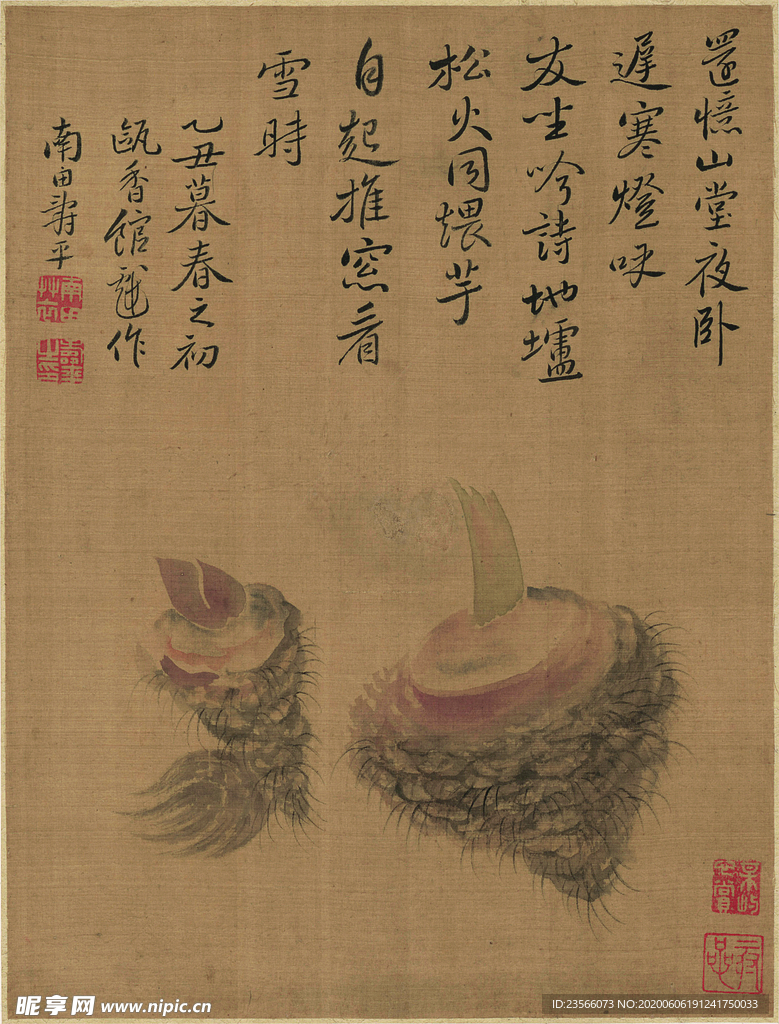 還憶山堂夜卧
遲寒燈呼
友坐吟詩地壚
松火同煨芋
自起推窓看
雪時
乙丑暮春之初
甌香館戲作
南田壽平
昵享网 www.nipic.cn
ID:23566073 NO:20200606191241750033